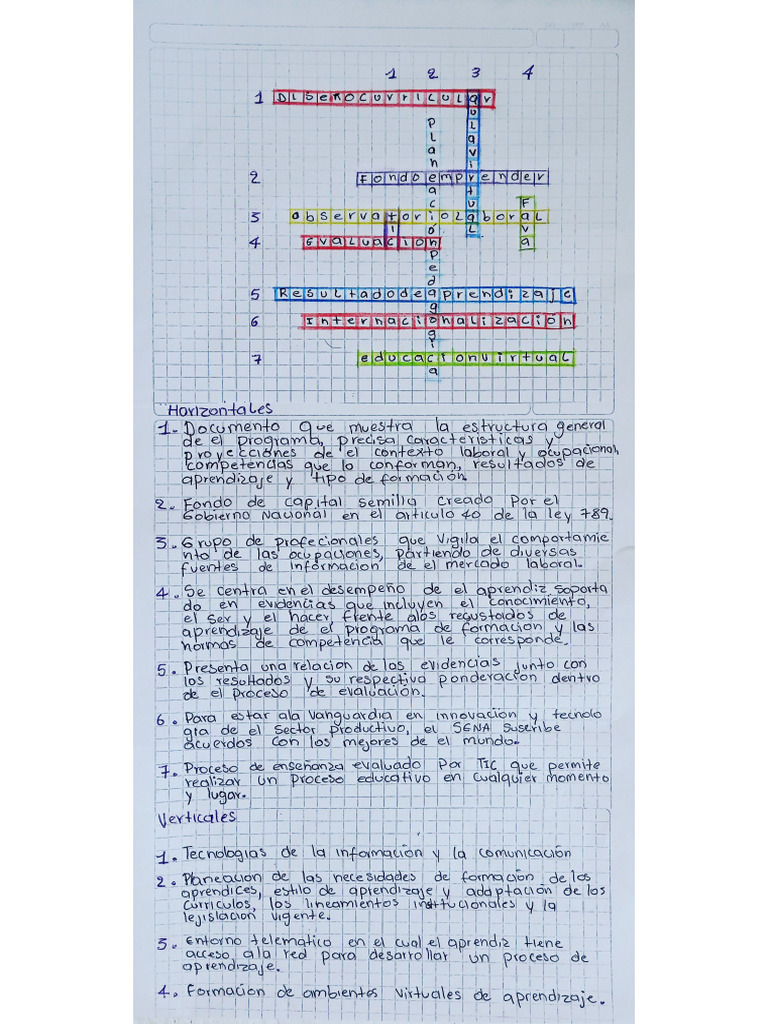 1 2 3 4
1 DiseñocurricuLar
PLaneación pedagogica
auLavirtuaL
2 Fondoemprender
Fava
3 observatorioLaboraL
tic
4 evaluacion
5 Resultadodeaprendizaje
6 Internacionalización
7 educacionvirtual
Horizontales
1. Documento que muestra la estructura general
de el programa, precisa caracteristicas y
proyecciones de el contexto laboral y ocupacional,
competencias que lo conforman, resultados de
aprendizaje y tipo de formación.
2. Fondo de capital semilla creado por el
Gobierno Nacional en el articulo 40 de la ley 789.
3. Grupo de profecionales que vigila el comportamie
nto de las ocupaciones, partiendo de diversas
fuentes de informacion de el mercado laboral.
4. Se centra en el desempeño de el aprendiz soporta
do en evidencias que incluyen el conocimiento,
el ser y el hacer, frente alos regustados de
aprendizaje de el programa de formación y las
normas de competencia que le corresponde.
5. Presenta una relacion de las evidencias junto con
los resultados y su respectiva ponderación dentro
de el proceso de evaluación.
6. Para estar ala vanguardia en innovación y tecnolo
gia de el sector productivo, el SENA suscribe
acuerdos con los mejores de el mundo.
7. Proceso de enseñanza evaluado por TIC que permite
realizar un proceso educativo en cualquier momento
y lugar.
Verticales
1. Tecnologias de la información y la comunicación
2. Planeación de las necesidades de formación de los
aprendices, estilo de aprendizaje y adaptación de los
curriculos, los lineamientos institucionales y la
legislacion vigente.
3. Entorno telematico en el cual el aprendiz tiene
acceso ala red para desarrollar un proceso de
aprendizaje.
4. Formacion de ambientes virtuales de aprendizaje.